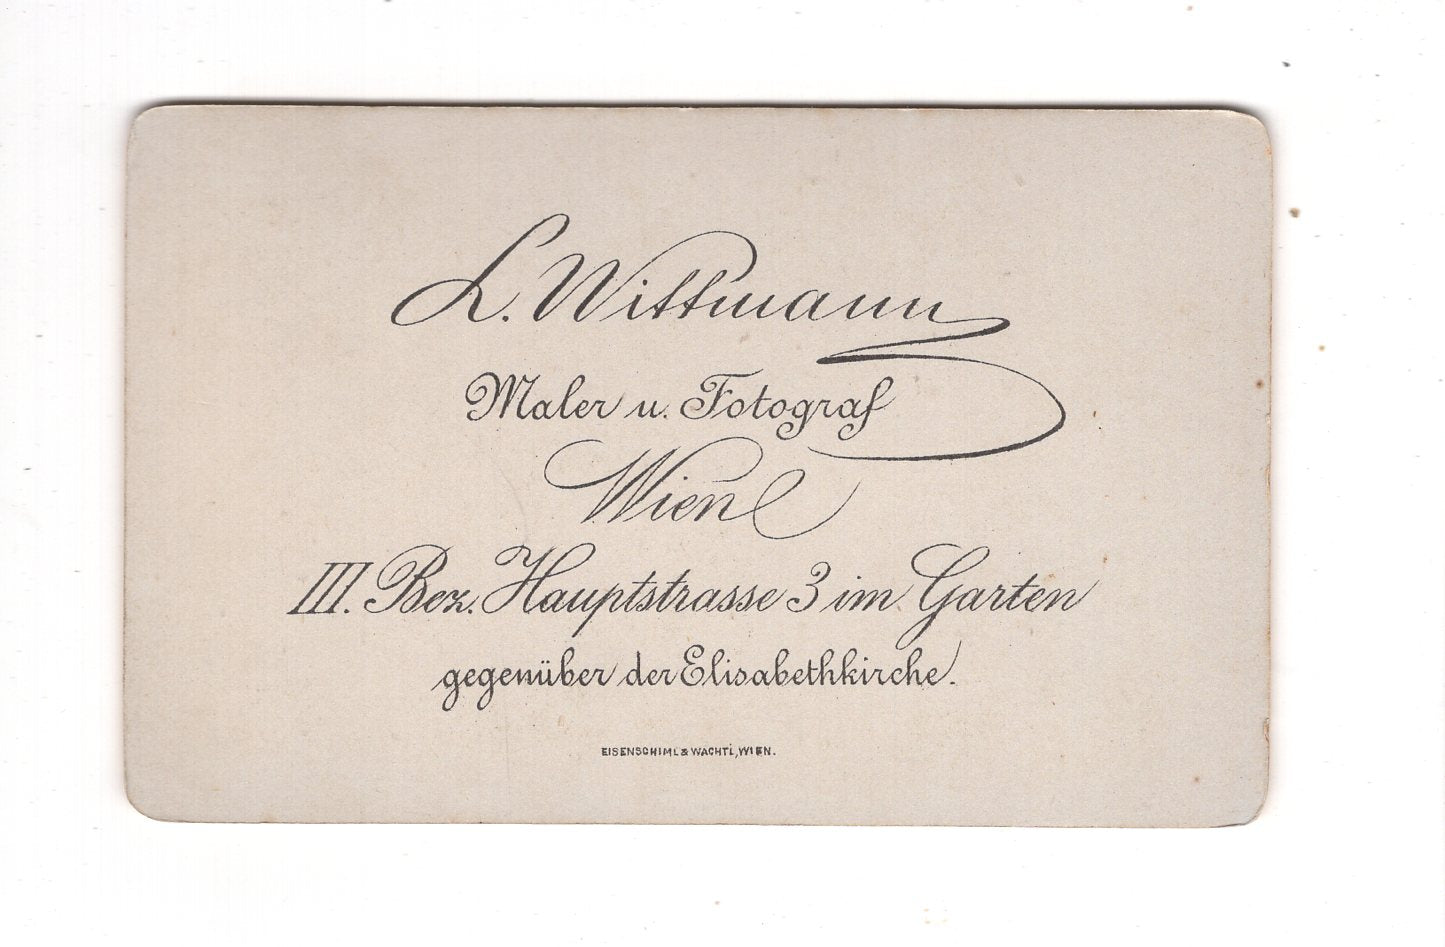 L. Wittmann
Maler u. Fotograf
Wien
III. Bez. Hauptstrasse 3 im Garten
gegenüber der Elisabethkirche.
EISENSCHIML & WACHTL, WIEN.